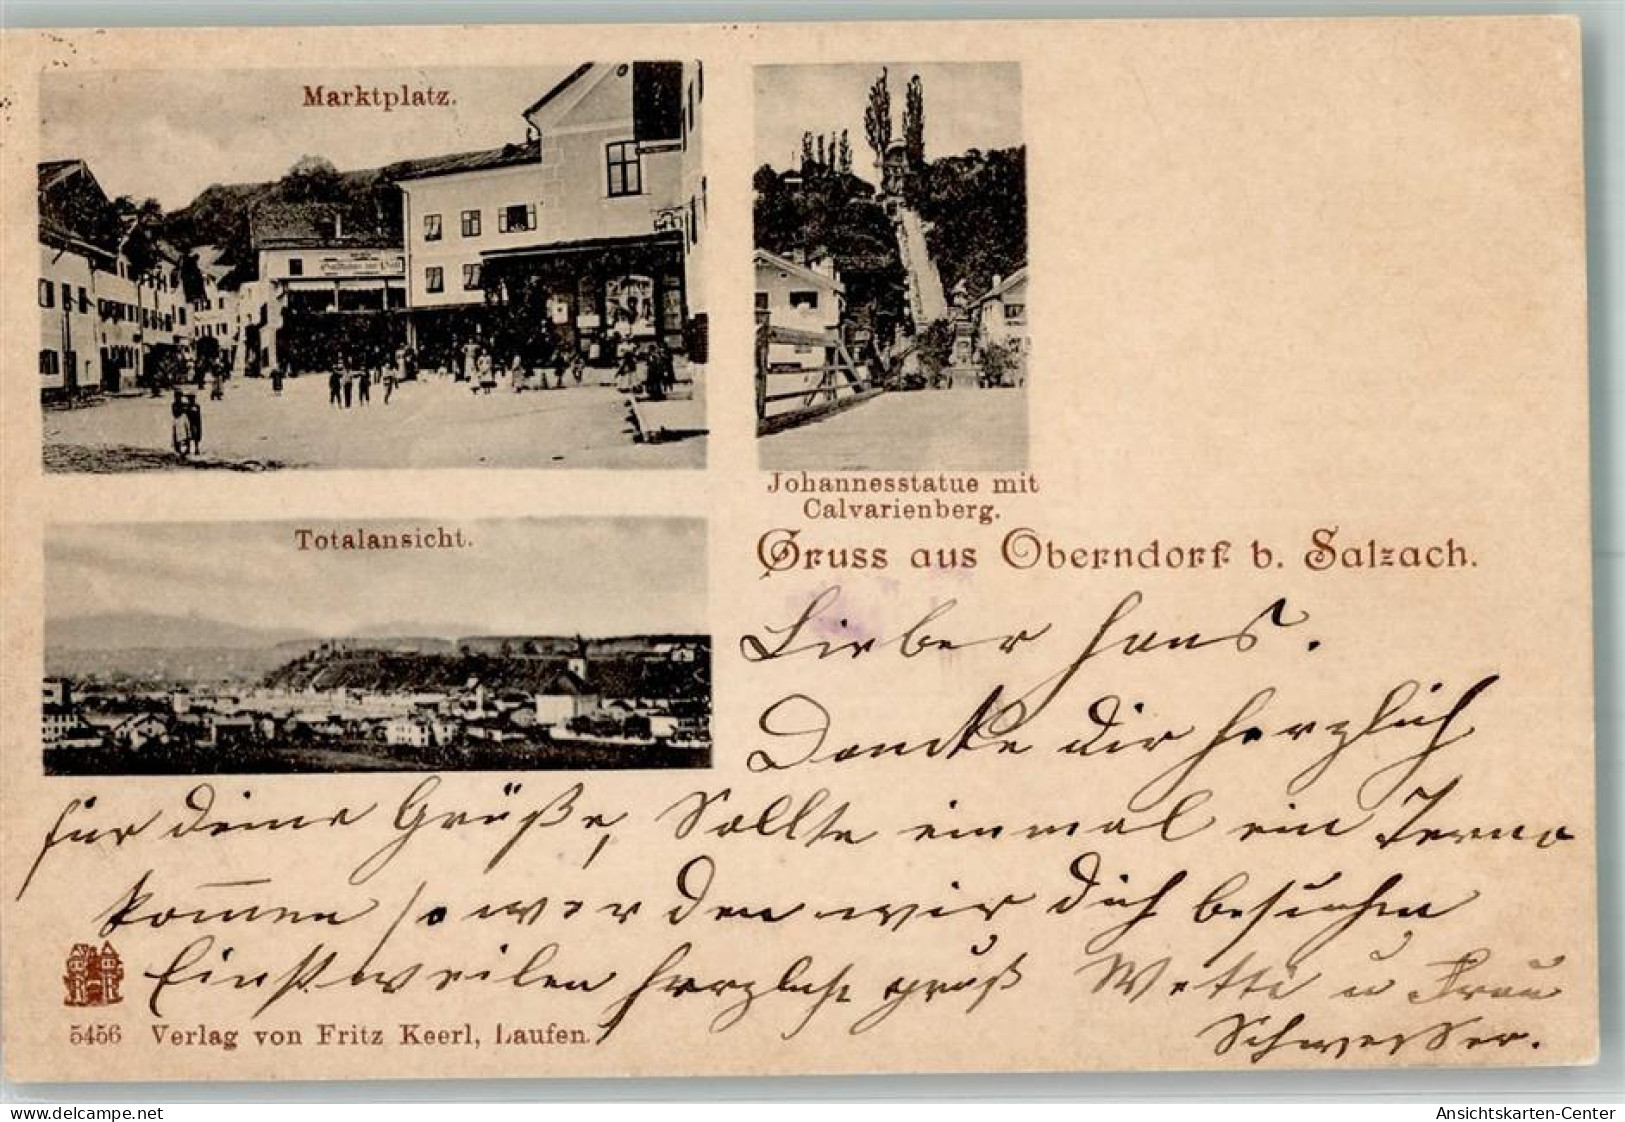 Marktplatz.
Johannesstatue mit
Calvarienberg.
Totalansicht.
Gruss aus Oberndorf b. Salzach.
Lieber Hans.
Dancke dir herzlich
für deine Grüße, Sollte einmal ein Terno
kommen so werden wir dich besuchen
Einstweilen herzlichst gruß Wetti u Frau
Schwester.
5456 Verlag von Fritz Keerl, Laufen.
delcampe.net
Ansichtskarten-Center